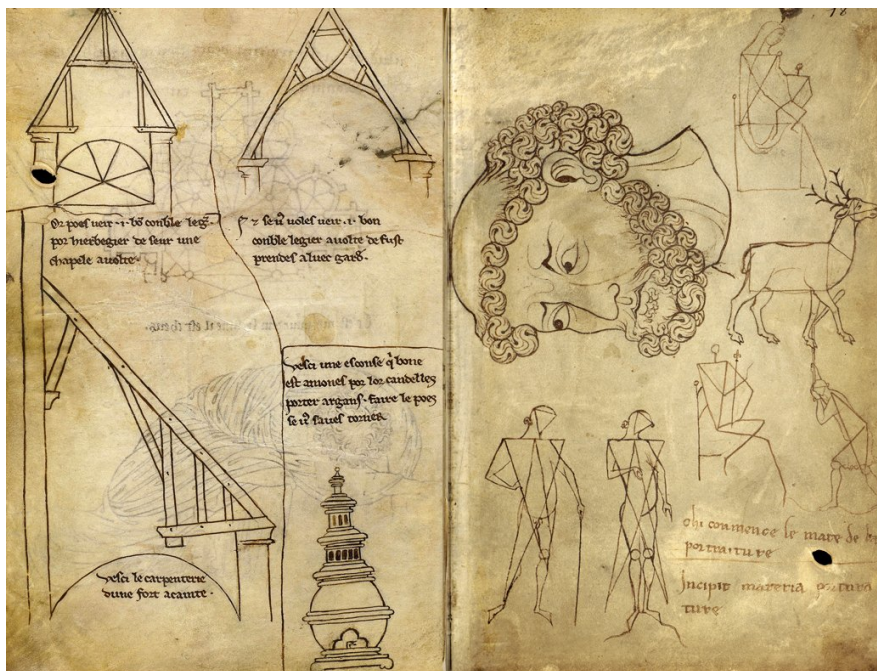 Or poes veir .i. bō conble legᵉ.
por hierbegier de seur une
chapele a volte.
⁊ se vͦ voles veir .i. bon
conble legier a volte de fust
prendes aluec gard.
Vesci une esconse q̄ bone
est a mones por lor candelles
porter argans. faire le poes
se vͦ saves torner.
Vesci le carpenterie
dune fort acainte.
18
chi conmence le mate de la
portraiture
Incipit materia portura
ture